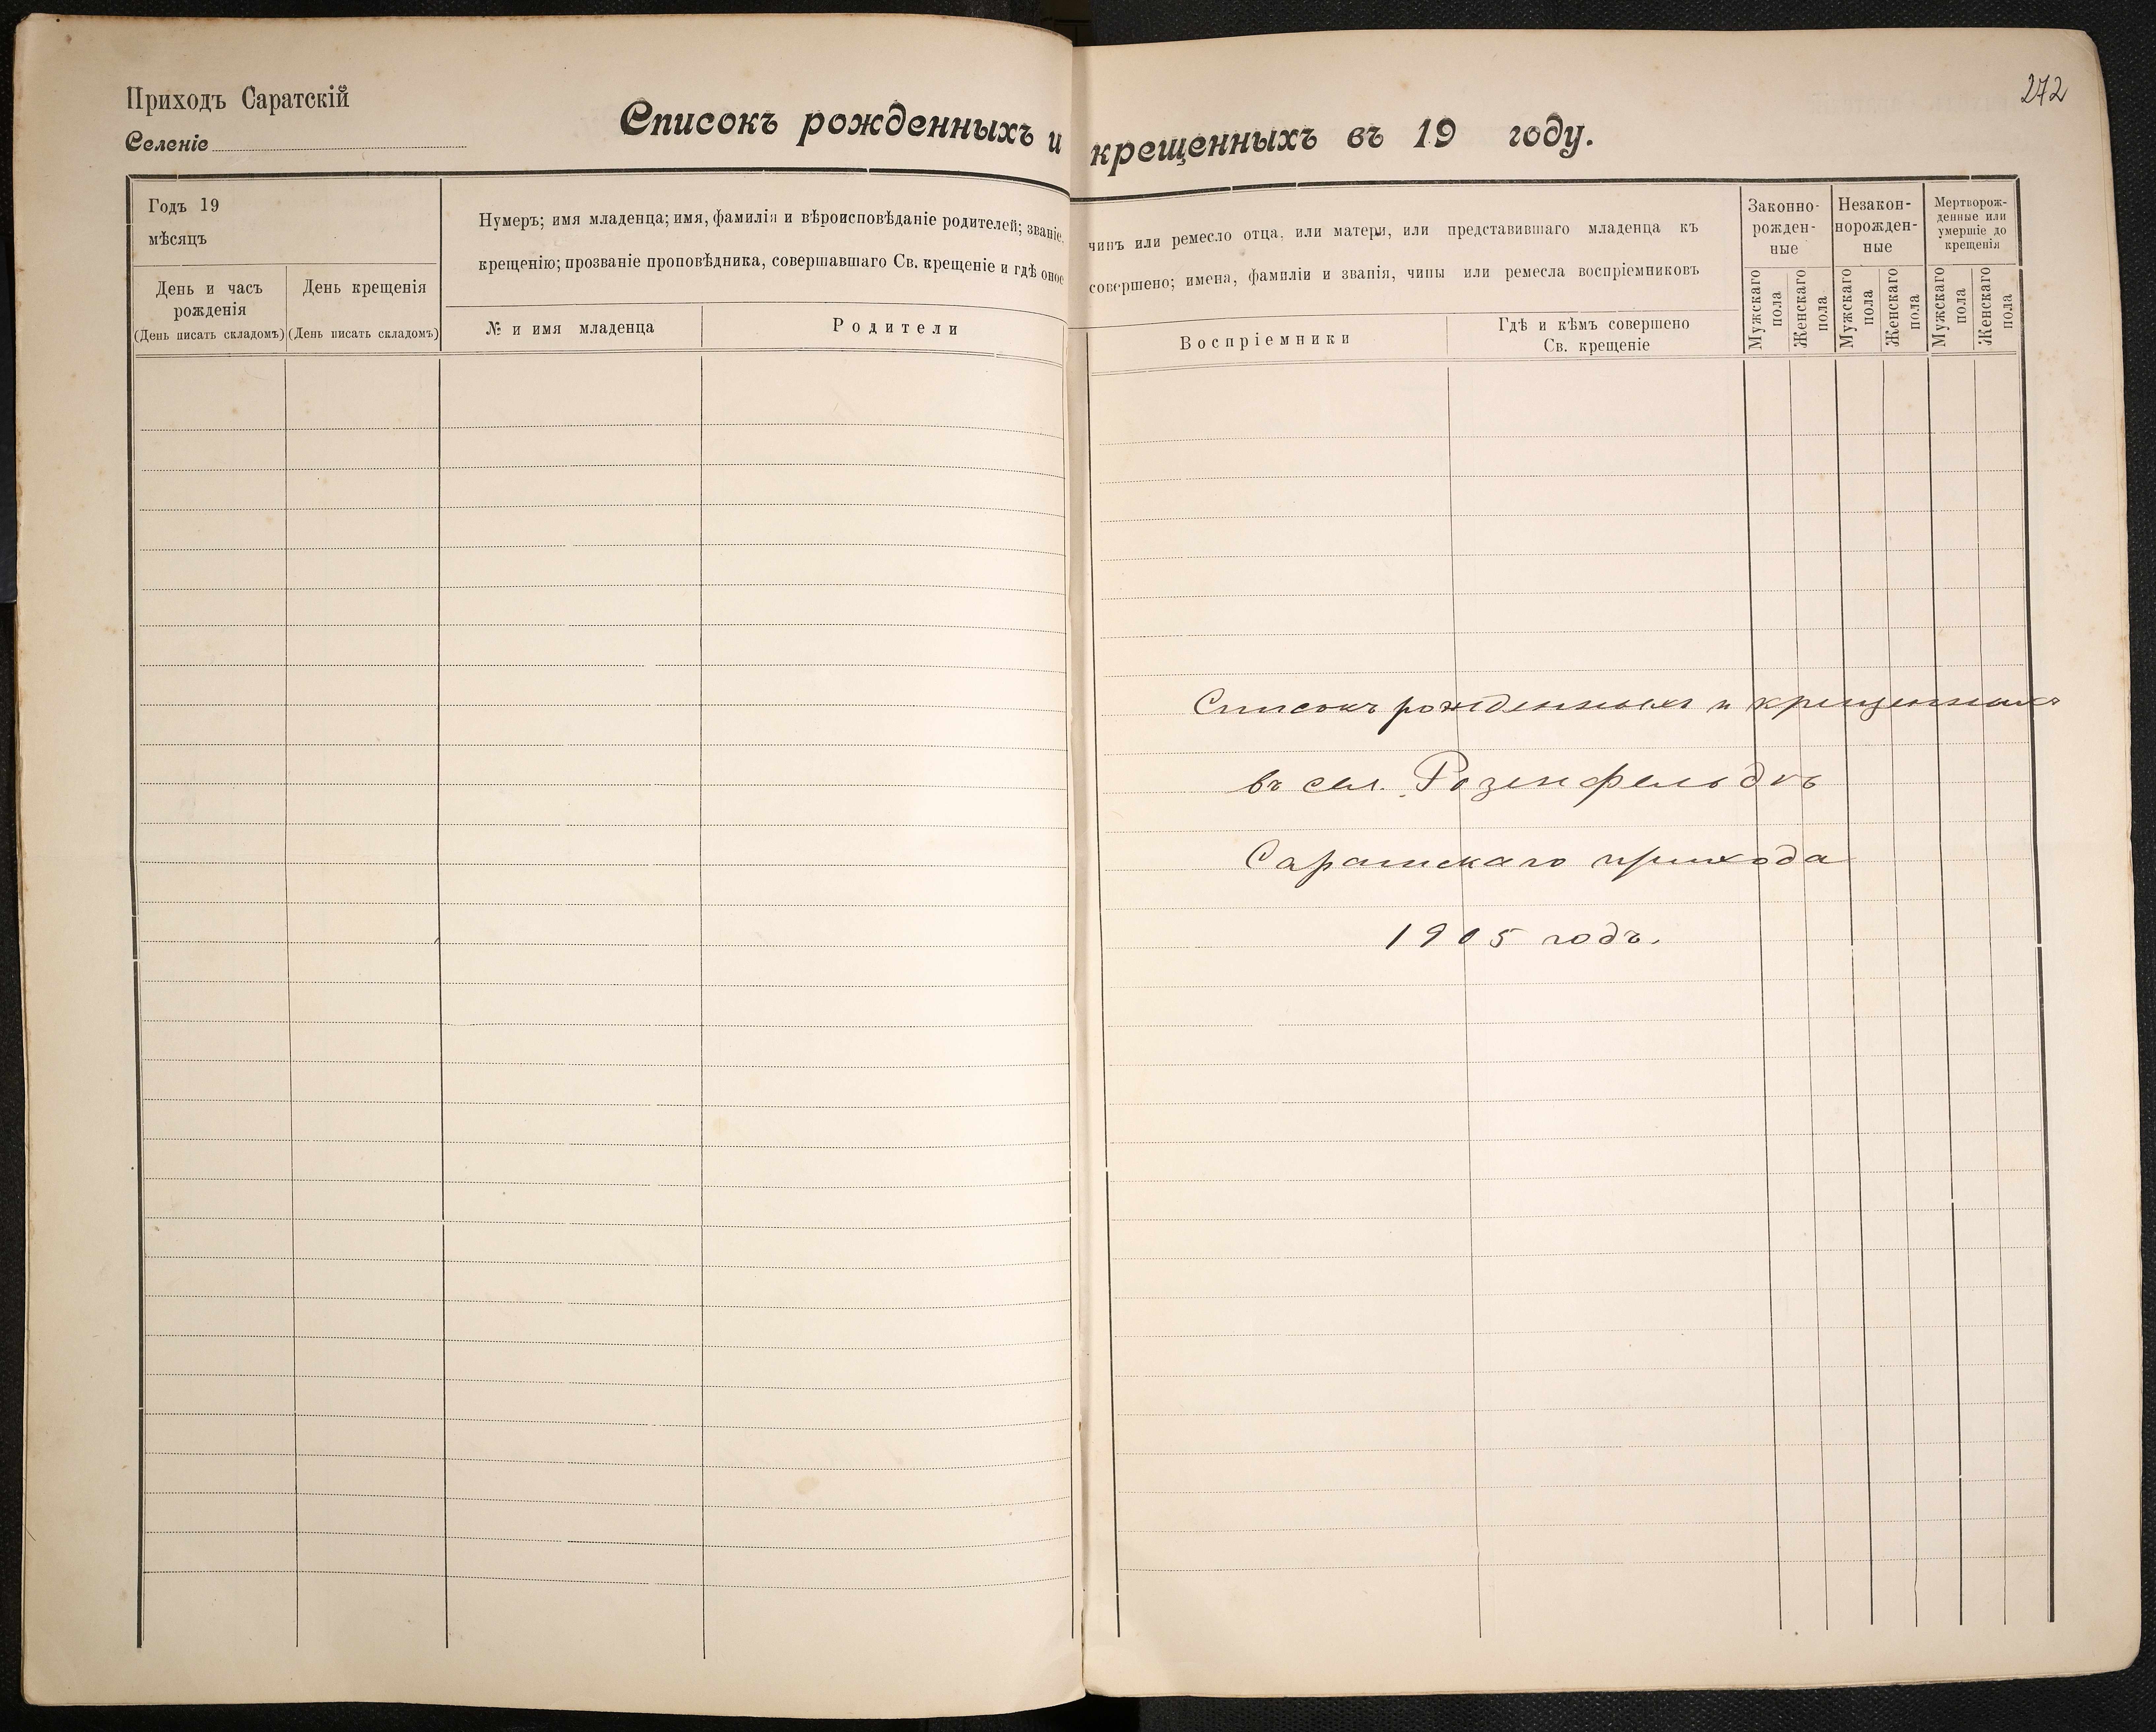 272
Приходъ Саратскій
Селеніе
Списокъ рожденныхъ и крещенныхъ въ 19 году.
Годъ 19
мѣсяцъ
День и часъ
рожденія
(День писать складомъ)
День крещенія
(День писать складомъ)
Нумеръ; имя младенца; имя, фамилія и вѣроисповѣданіе родителей; званіе,
крещенію; прозваніе проповѣдника, совершавшаго Св. крещеніе и гдѣ оное
№ и имя младенца
Родители
чинъ или ремесло отца, или матери, или представившаго младенца къ
совершено; имена, фамиліи и званія, чины или ремесла воспріемниковъ
Воспріемники
Гдѣ и кѣмъ совершено
Св. крещеніе
Законно-
рожден-
ные
Незакон-
норожден-
ные
Мертворож-
денные или
умершіе до
крещенія
Мужскаго
пола
Женскаго
пола
Мужскаго
пола
Женскаго
пола
Мужскаго
пола
Женскаго
пола
Списокъ рожденныхъ и крещенныхъ
въ сел. Розенфельдѣ
Саратскаго прихода
1905 годъ.